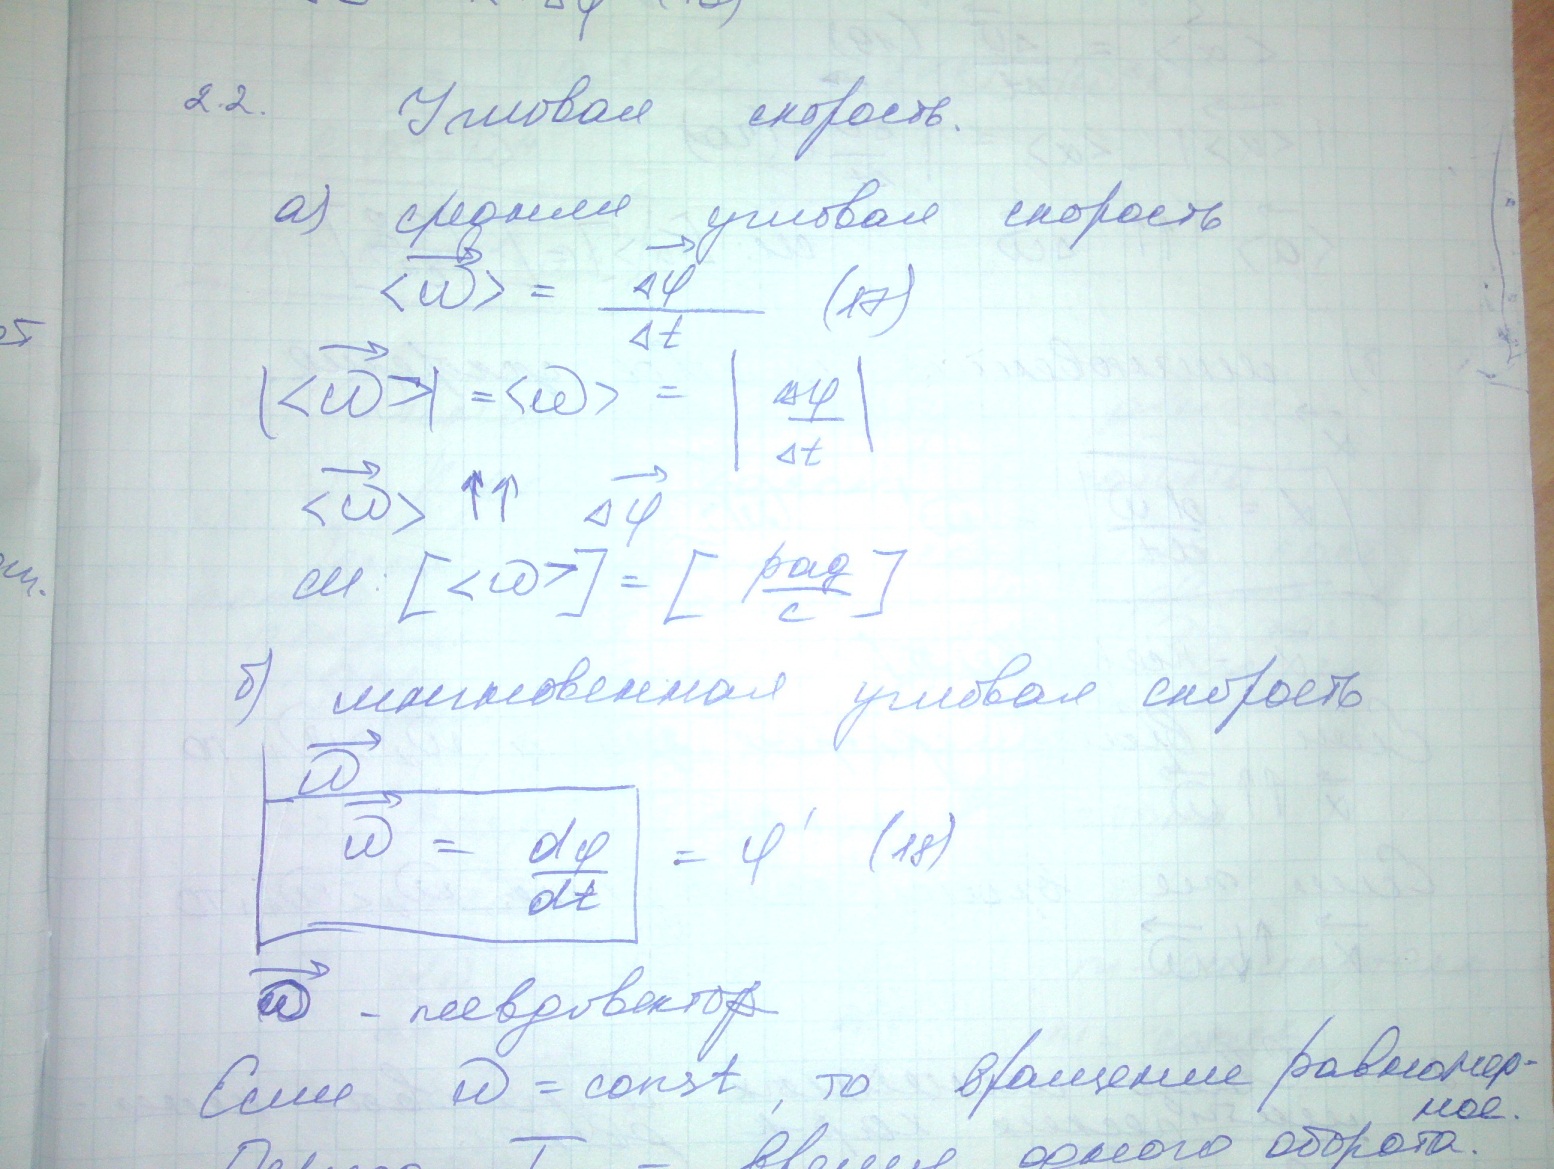 2.2. Угловая скорость.
а) средняя угловая скорость
<ω⃗> = Δφ⃗ / Δt (17)
|<ω⃗>| = <ω> = |Δφ / Δt|
<ω⃗> ↑↑ Δφ⃗
си: [<ω>] = [рад / с]
б) мгновенная угловая скорость
ω⃗
ω⃗ = dφ / dt = φ′ (18)
ω⃗ - псевдовектор
Если ω = const, то вращение равномер-
ное.
Период T = время одного оборота.